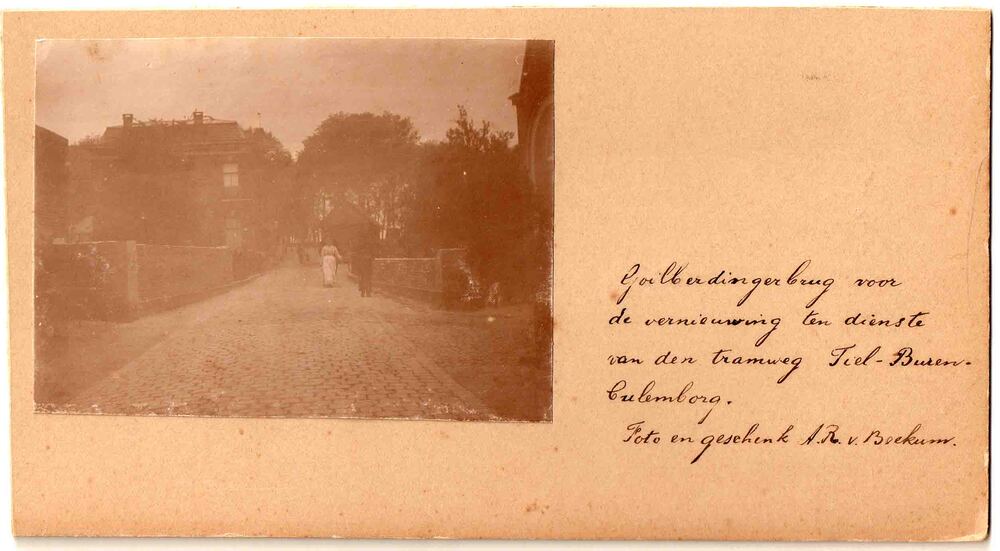 Goilberdingerbrug voor
de vernieuwing ten dienste
van den tramweg Tiel-Buren-
Culemborg.
Foto en geschenk A.R. v. Beekum.